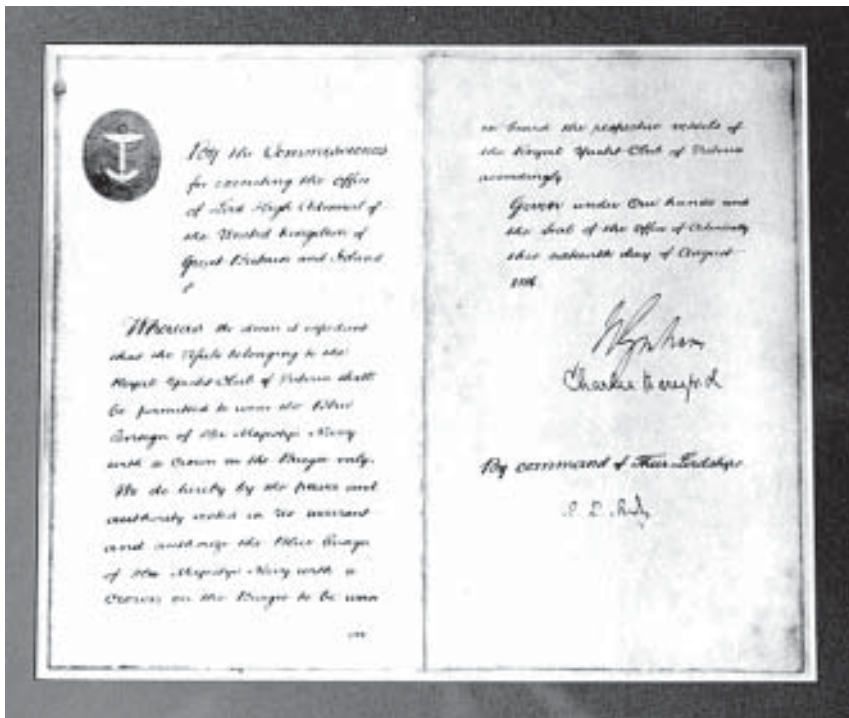 By the Commissioners
for executing the office
of Lord High Admiral of
the United Kingdom of
Great Britain and Ireland
&
Whereas We deem it expedient
that the Vessels belonging to the
Royal Yacht Club of Victoria shall
be permitted to wear the Blue
Ensign of Her Majestys Navy
with a Crown on the Burgee only.
We do hereby by the power and
authority vested in Us warrant
and authorize the Blue Ensign
of Her Majestys Navy with a
Crown on the Burgee to be worn
on
on board the respective vessels of
the Royal Yacht Club of Victoria
accordingly
Given under Our hands and
the Seal of the Office of Admiralty
this sixteenth day of August
Charles Beresford
By command of Their Lordships